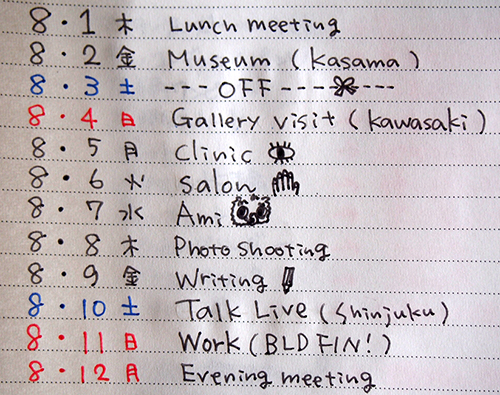 8・1 木 Lunch meeting
8・2 金 Museum (Kasama)
8・3 土 ---OFF--------
8・4 日 Gallery visit (Kawasaki)
8・5 月 Clinic
8・6 火 Salon
8・7 水 Ami
8・8 木 Photo shooting
8・9 金 Writing
8・10 土 Talk Live (Shinjuku)
8・11 日 Work (BLD FIN!)
8・12 月 Evening meeting